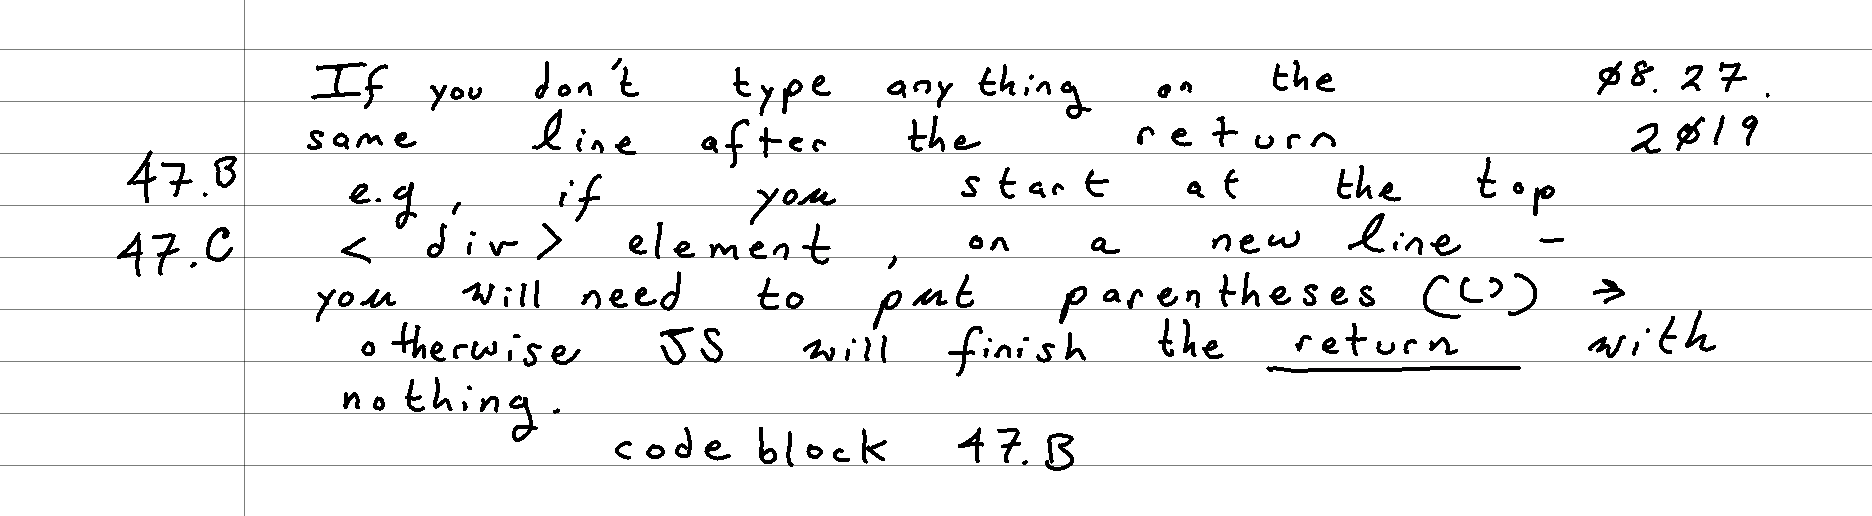 If you don't type anything on the 08.27.
same line after the return 2019
47.B e.g, if you start at the top
47.C <div> element, on a new line -
you will need to put parentheses (()) →
otherwise JS will finish the return with
nothing.
code block 47.B